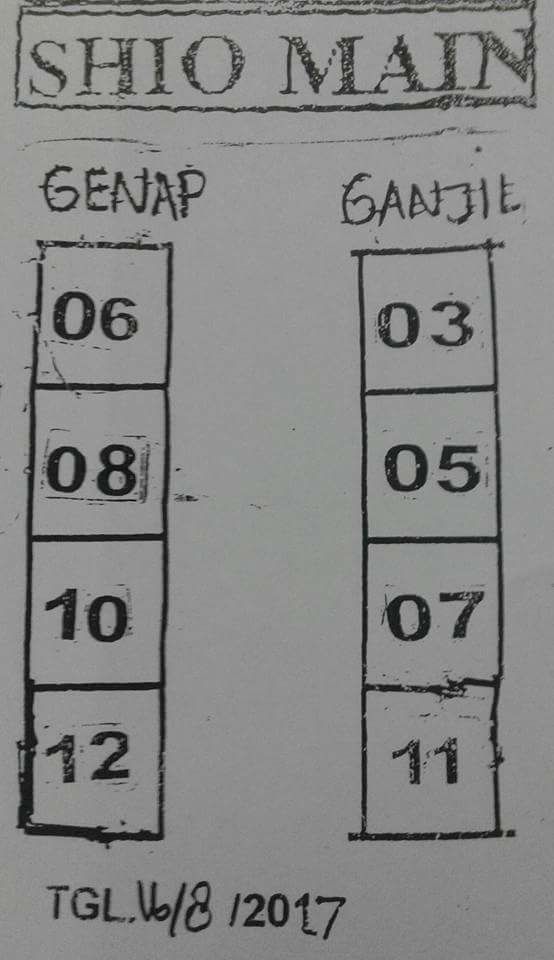 SHIO MAIN
GENAP GANJIL
06 03
08 05
10 07
12 11
TGL. 16/8 /2017